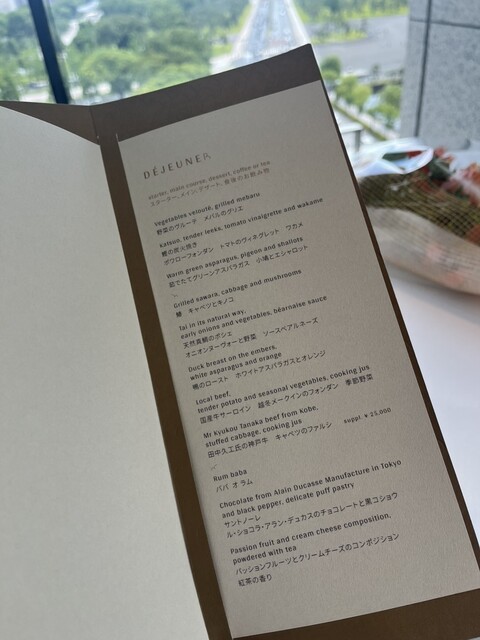 DÉJEUNER
starter, main course, dessert, coffee or tea
スターター、メイン、デザート、食後のお飲み物
Vegetables velouté, grilled mebaru
野菜のヴルーテ メバルのグリエ
Katsuo, tender leeks, tomato vinaigrette and wakame
鰹の炭火焼き
ポワローフォンダン トマトのヴィネグレット ワカメ
Warm green asparagus, pigeon and shallots
茹でたてグリーンアスパラガス 小鳩とエシャロット
Grilled sawara, cabbage and mushrooms
鰆 キャベツとキノコ
Tai in its natural way,
early onions and vegetables, béarnaise sauce
天然真鯛のポシェ
オニオンヌーヴォーと野菜 ソースベアルネーズ
Duck breast on the embers,
white asparagus and orange
鴨のロースト ホワイトアスパラガスとオレンジ
Local beef,
tender potato and seasonal vegetables, cooking jus
国産牛サーロイン 越冬メークインのフォンダン 季節野菜
Mr Kyukou Tanaka beef from Kobe,
stuffed cabbage, cooking jus
田中久工氏の神戸牛 キャベツのファルシ suppl ¥ 25,000
Rum baba
ババ オ ラム
Chocolate from Alain Ducasse Manufacture in Tokyo
and black pepper, delicate puff pastry
サントノーレ
ル・ショコラ・アラン・デュカスのチョコレートと黒コショウ
Passion fruit and cream cheese composition,
powdered with tea
パッションフルーツとクリームチーズのコンポジション
紅茶の香り